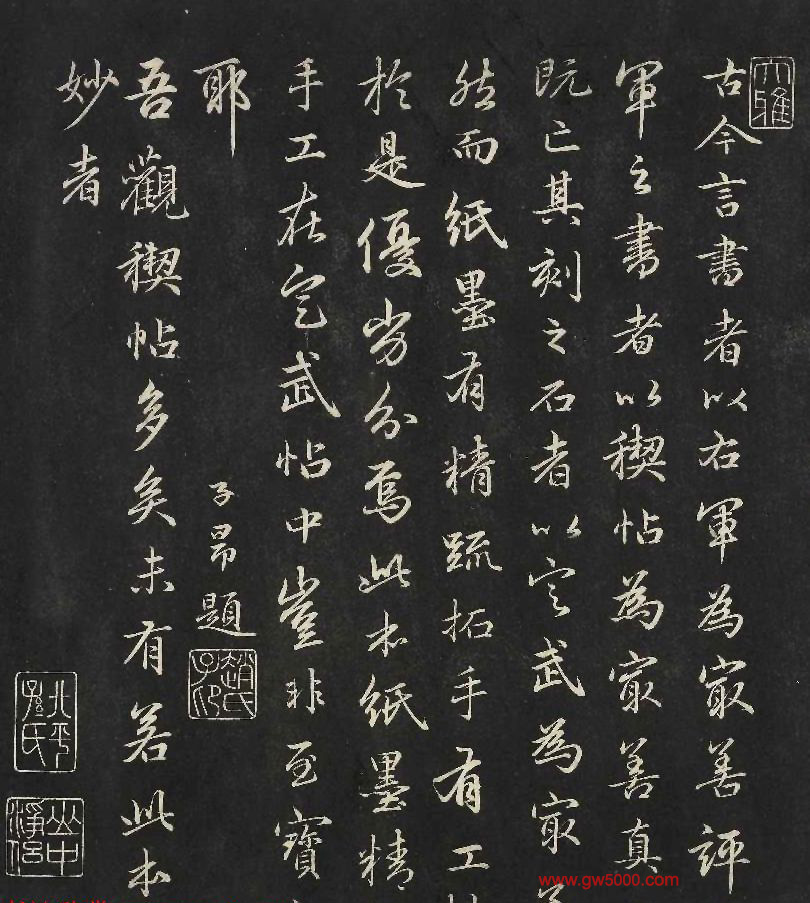 古今言書者以右軍為最善評
軍之書者以稧帖為最善真
既亡其刻之石者以定武為最
然而紙墨有精䟽拓手有工
於是優劣分焉此本紙墨精
手工在定武帖中豈非至寶
耶
子昂題
吾觀稧帖多矣未有若此本
妙者
大雅
趙氏子昂
北平孫氏
www.gw5000.com